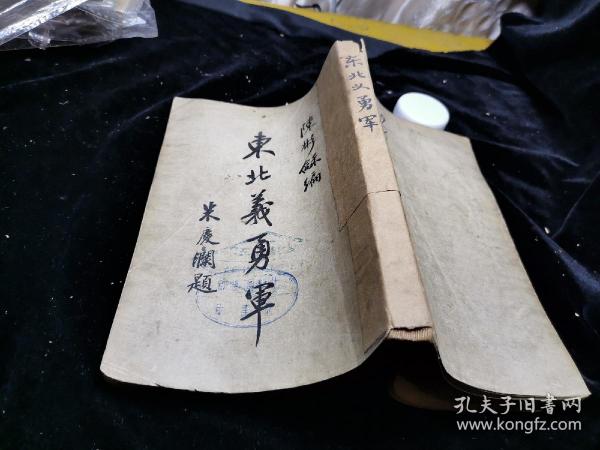 陳彬龢編
東北義勇軍
朱慶瀾題
东北义勇军
孔夫子旧書网
www.kongfz.com